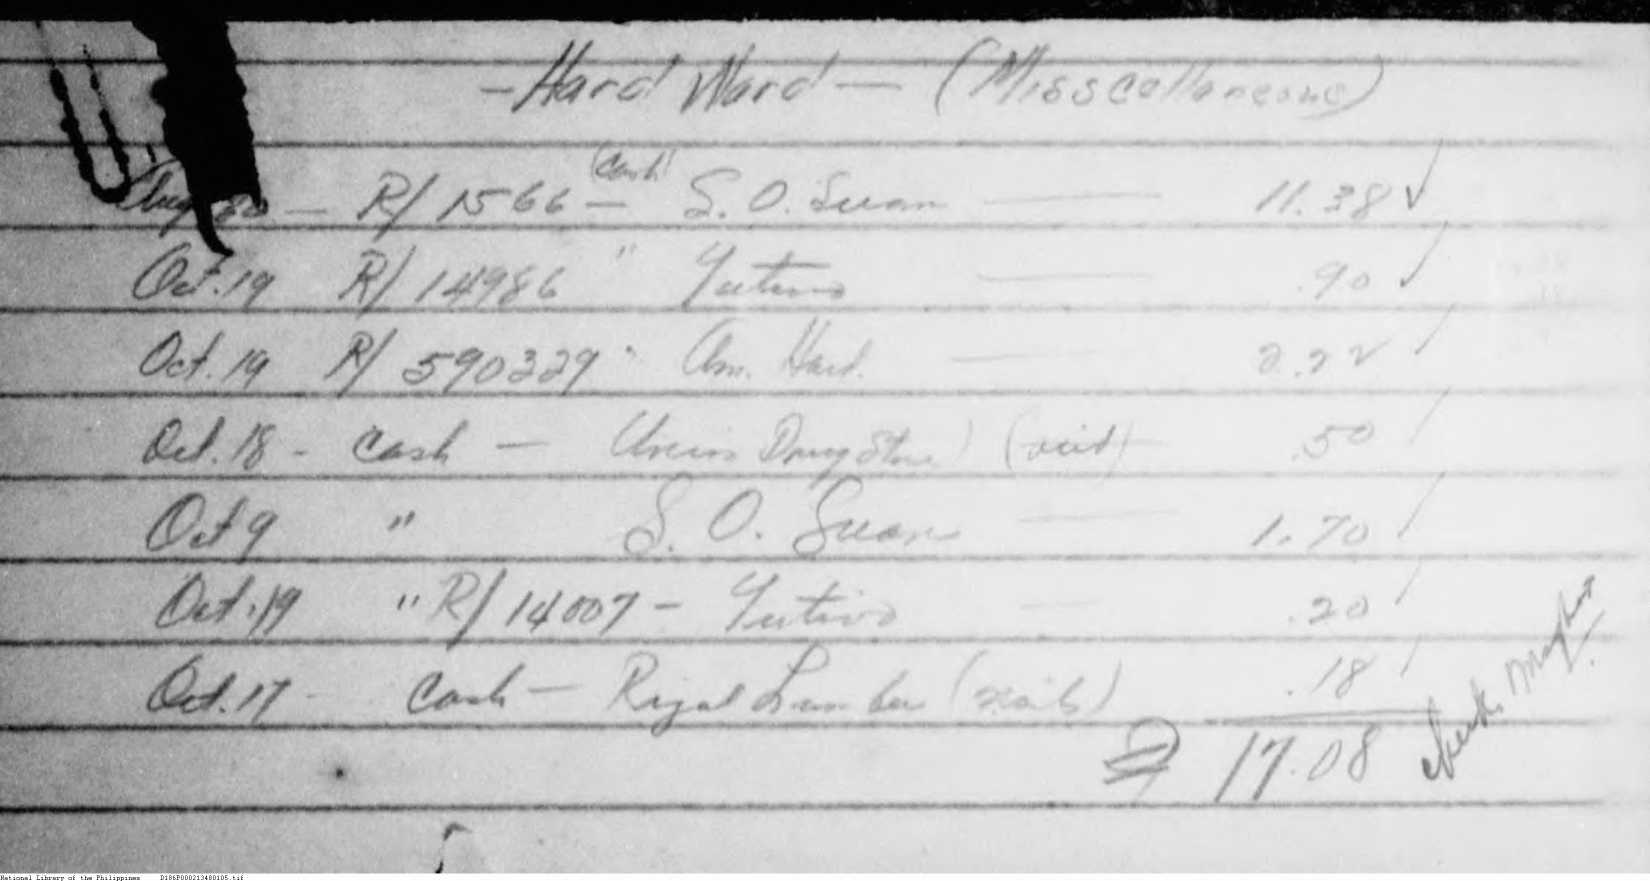 - Hard Ward - (Misscellaneous)
Aug 30 - R/ 1566 - (Cash) S. O. Suan - 11.38 ✓
Oct. 19 R/ 14986 " Yutivo - .90 ✓
Oct. 19 R/ 590329 " Am. Hard. - 2.22 ✓
Oct. 18 - Cash - Drug Store) - .50 /
Oct 9 " S. O. Suan - 1.70 /
Oct. 19 " R/ 14007 - Yutivo - .20 /
Oct. 17 - Cash - Rizal Lumber (nails) .18 /
₱ 17.08
National Library of the Philippines D186P000213480105.tif